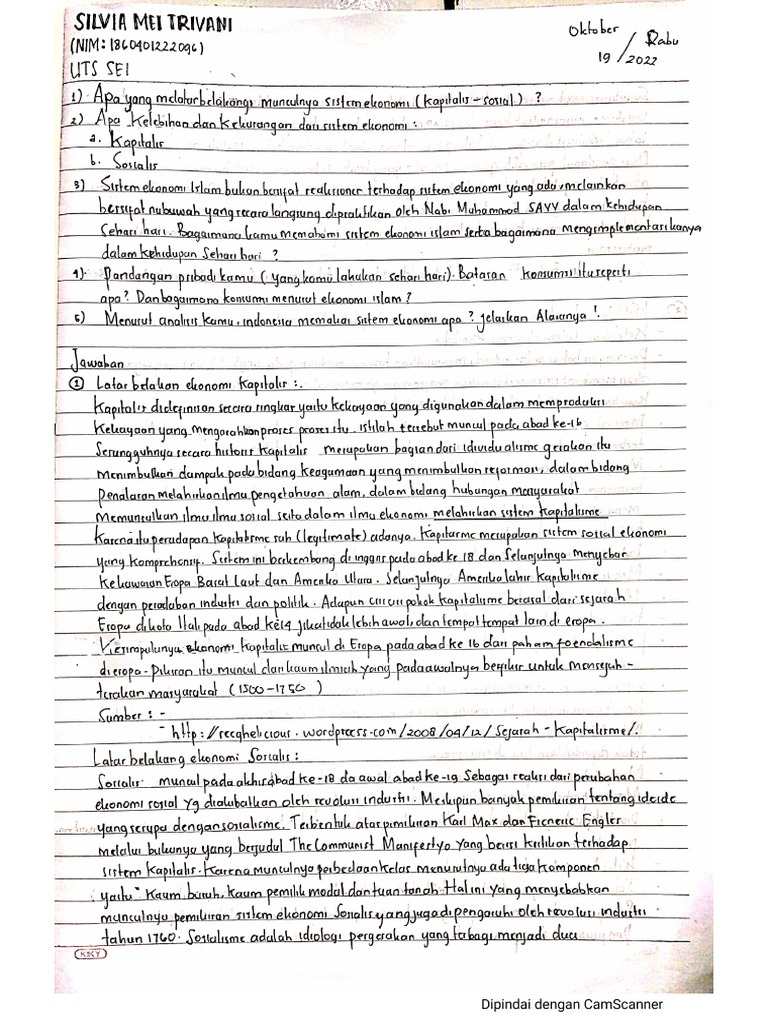 SILVIA MEI TRIVANI
Oktober
Rabu
(NIM: 1860401222096)
19 / 2022
UTS SEI
1) Apa yang melatarbelakangi munculnya sistem ekonomi (kapitalis - sosial) ?
2) Apa Kelebihan dan Kekurangan dari sistem ekonomi :
a. Kapitalis
b. Sosialis
3) Sistem ekonomi Islam bukan bersifat reaksioner terhadap sistem ekonomi yang ada, melainkan
bersifat nubuwah yang secara langsung dipraktikan oleh Nabi Muhammad SAW dalam kehidupan
Sehari hari. Bagaimana kamu memahami sistem ekonomi islam serta bagaimana mengimplementasikanya
dalam Kehidupan Sehari hari ?
4) Pandangan pribadi kamu (yang kamu lakukan sehari hari). Batasan konsumsi itu seperti
apa? Dan bagaimana konsumsi menurut ekonomi islam ?
5) Menurut analisis kamu, indonesia memakai sistem ekonomi apa ? jelaskan Alasanya !
Jawaban
① Latar belakan ekonomi Kapitalis :.
Kapitalis didefinisan secara ringkas yaitu kekayaan yang digunakan dalam memproduksi
Kekayaan yang mengarahkan proses proses itu. istilah tersebut muncul pada abad ke-16
Sesungguhnya secara historis kapitalis merupakan bagian dari idividualisme gerakan itu
menimbulkan dampak pada bidang keagamaan yang menimbulkan reformasi, dalam bidang
Penalaran melahirkan ilmu pengetahuan alam, dalam bidang hubungan masyarakat
Memunculkan ilmu ilmu sosial serta dalam ilmu ekonomi melahirkan sistem kapitalisme
Karena itu peradapan kapitalisme sah (legitimate) adanya. Kapitarsme merupakan sistem sosial ekonomi
yang komprehensif. Sistem ini berkembang di inggris pada abad ke 18 dan Selanjutnya menyebar
Ke kawasan Eropa Barat Laut dan Amerika Utara. Selanjutnya Amerika lahir kapitalisme
dengan peradaban industri dan politik. Adapun ciri ciri pokok kapitalisme berasal dari sejarah
Eropa di kota Itali pada abad ke14 jika tidak lebih awal dan tempat tempat lain di eropa.
ekonomi kapitalis muncul di Eropa pada abad ke 16 dari paham foendalisme
dieropa. Pikiran itu muncul dari kaum ilmiah yang pada awalnya berfikir untuk mensejah-
terakan masyarakat (1500-1750)
Sumber : -
- http://recqhelicious.wordpress.com/2008/04/12/Sejarah-Kapitalisme/.
Latar belakang ekonomi Sosialis :
Sosialis muncul pada akhir abad ke-18 da awal abad ke-19 Sebagai reaksi dari perubahan
ekonomi sosial yg diakibatkan oleh revolusi industri. Meskipun banyak pemikiran tentang ide ide
yang serupa dengan sosialisme. Terbentuk atas pemikiran Karl Max dan Engles
melalui bukunya yang berjudul The Communist Manifertyo Yang berisi kritikan terhadap
sistem Kapitalis. Karena munculnya perbedaan kelas menurutnya ada tiga komponen
yaitu " Kaum buruh, kaum pemilik modal dan tuan tanah. Hal ini yang menyebabkan
munculnya pemikiran sistem ekonomi Sosialis yang juga dipengaruhi oleh revolusi industri
tahun 1760. Sosialisme adalah idiologi pergerakan yang terbagi menjadi dua
KIKY
Dipindai dengan CamScanner